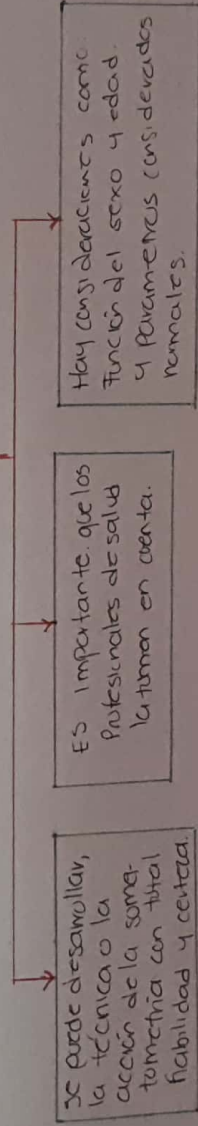 se puede desarrollar,
la técnica o la
acción de la soma-
tometría con total
fiabilidad y certeza.
ES importante que los
Profesionales de salud
la tomen en cuenta.
Hay consideraciones como
función del sexo y edad.
y parametros considerados
normales.